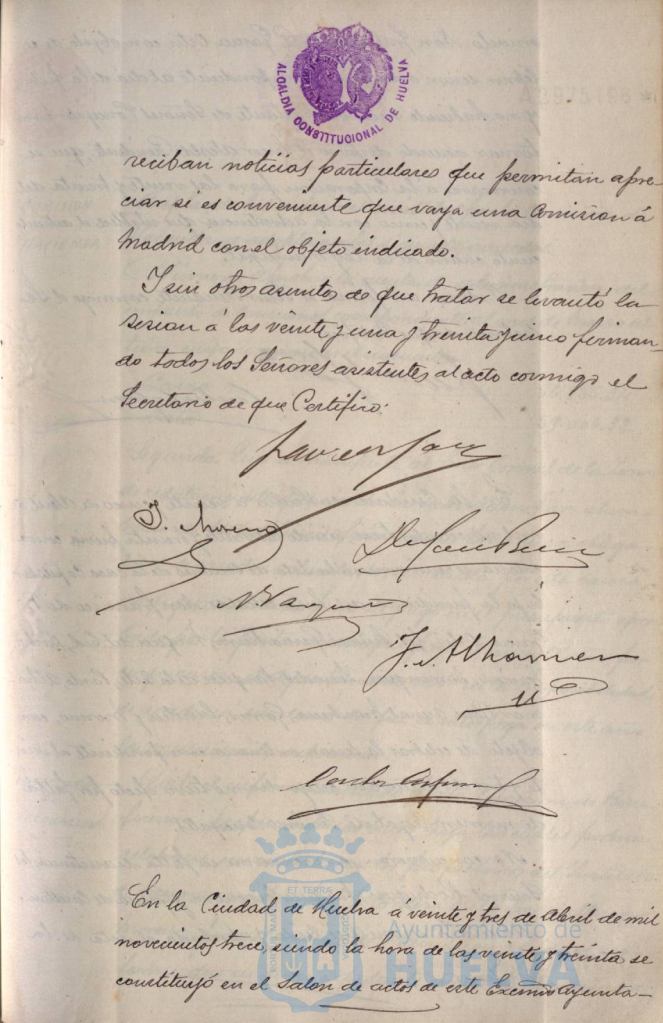 ALCALDIA CONSTITUCIONAL DE HUELVA
reciban noticias particulares que permitan apre-
ciar si es conveniente que vaya una Comision á
Madrid con el objeto indicado.
I sin otros asuntos de que tratar se levantó la
sesion á las veinte y una y treinta y cinco firman-
do todos los Señores asistentes al acto conmigo el
Secretario de que Certifico.
J. Moreno
N. Vazquez
En la Ciudad de Huelva á veinte y tres de Abril de mil
novecientos trece, siendo la hora de las veinte y treinta se
constituyó en el Salon de actos de este Excmo Ayunta-
ET TERRÆ
Ayuntamiento de
HUELVA